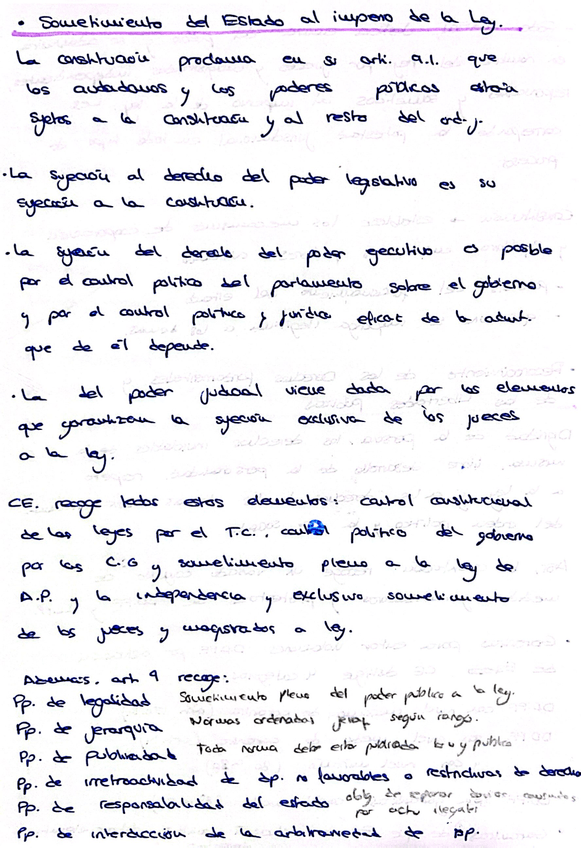 • Sometimiento del Estado al imperio de la Ley.
La constitución proclama en su artí. 9.1. que
los ciudadanos y los poderes públicos están
sujetos a la constitución y al resto del ord. j.
· La sujeción al derecho del poder legislativo es su
sujeción a la constitución.
· La sujeción del derecho del poder ejecutivo es posible
por el control político del parlamento sobre el gobierno
y por el control político y jurídico eficaz de la admt.
que de él depende.
· La del poder judicial viene dada por los elementos
que garantizan la sujeción exclusiva de los jueces
a la ley.
CE. recoge todos estos elementos: control constitucional
de las leyes por el T.C., control político del gobierno
por las C.G y sometimiento pleno a la ley de
A.P. y la independencia y exclusivo sometimiento
de los jueces y magistrados a ley.
Además, art 9 recoge:
Pp. de legalidad Sometimiento pleno del poder público a la ley.
Pp. de jerarquía Normas ordenadas jerarq según rango.
Pp. de publicidad Toda norma debe estar publicada y publica
Pp. de irretroactividad de dp. no favorables o restrictivas de derecho
Pp. de responsabilidad del estado oblig de reparar daños causados
por actu ilegales
Pp. de interdicción de la arbitrariedad de pp.